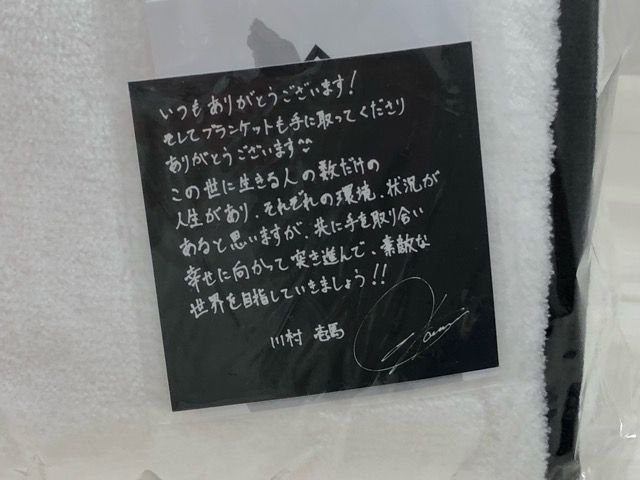 いつもありがとうございます!
そしてブランケットも手に取ってくださり
ありがとうございます
この世に生きる人の数だけの
人生があり、それぞれの環境、状況が
あると思いますが、共に手を取り合い
幸せに向かって突き進んで、素敵な
世界を目指していきましょう!!
川村 壱馬